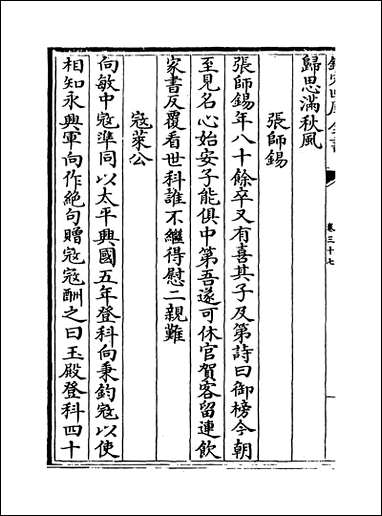 欽定四庫全書
卷三十七
歸思滿秋風
張師錫
張師錫年八十餘卒又有喜其子及第詩曰御榜今朝
至見名心始安子能俱中第吾遂可休官賀客留連飲
家書反覆看世科誰不繼得慰二親難
寇萊公
向敏中寇準同以太平興國五年登科向秉鈞寇以使
相知永興軍向作絶句贈寇寇酬之曰玉殿登科四十